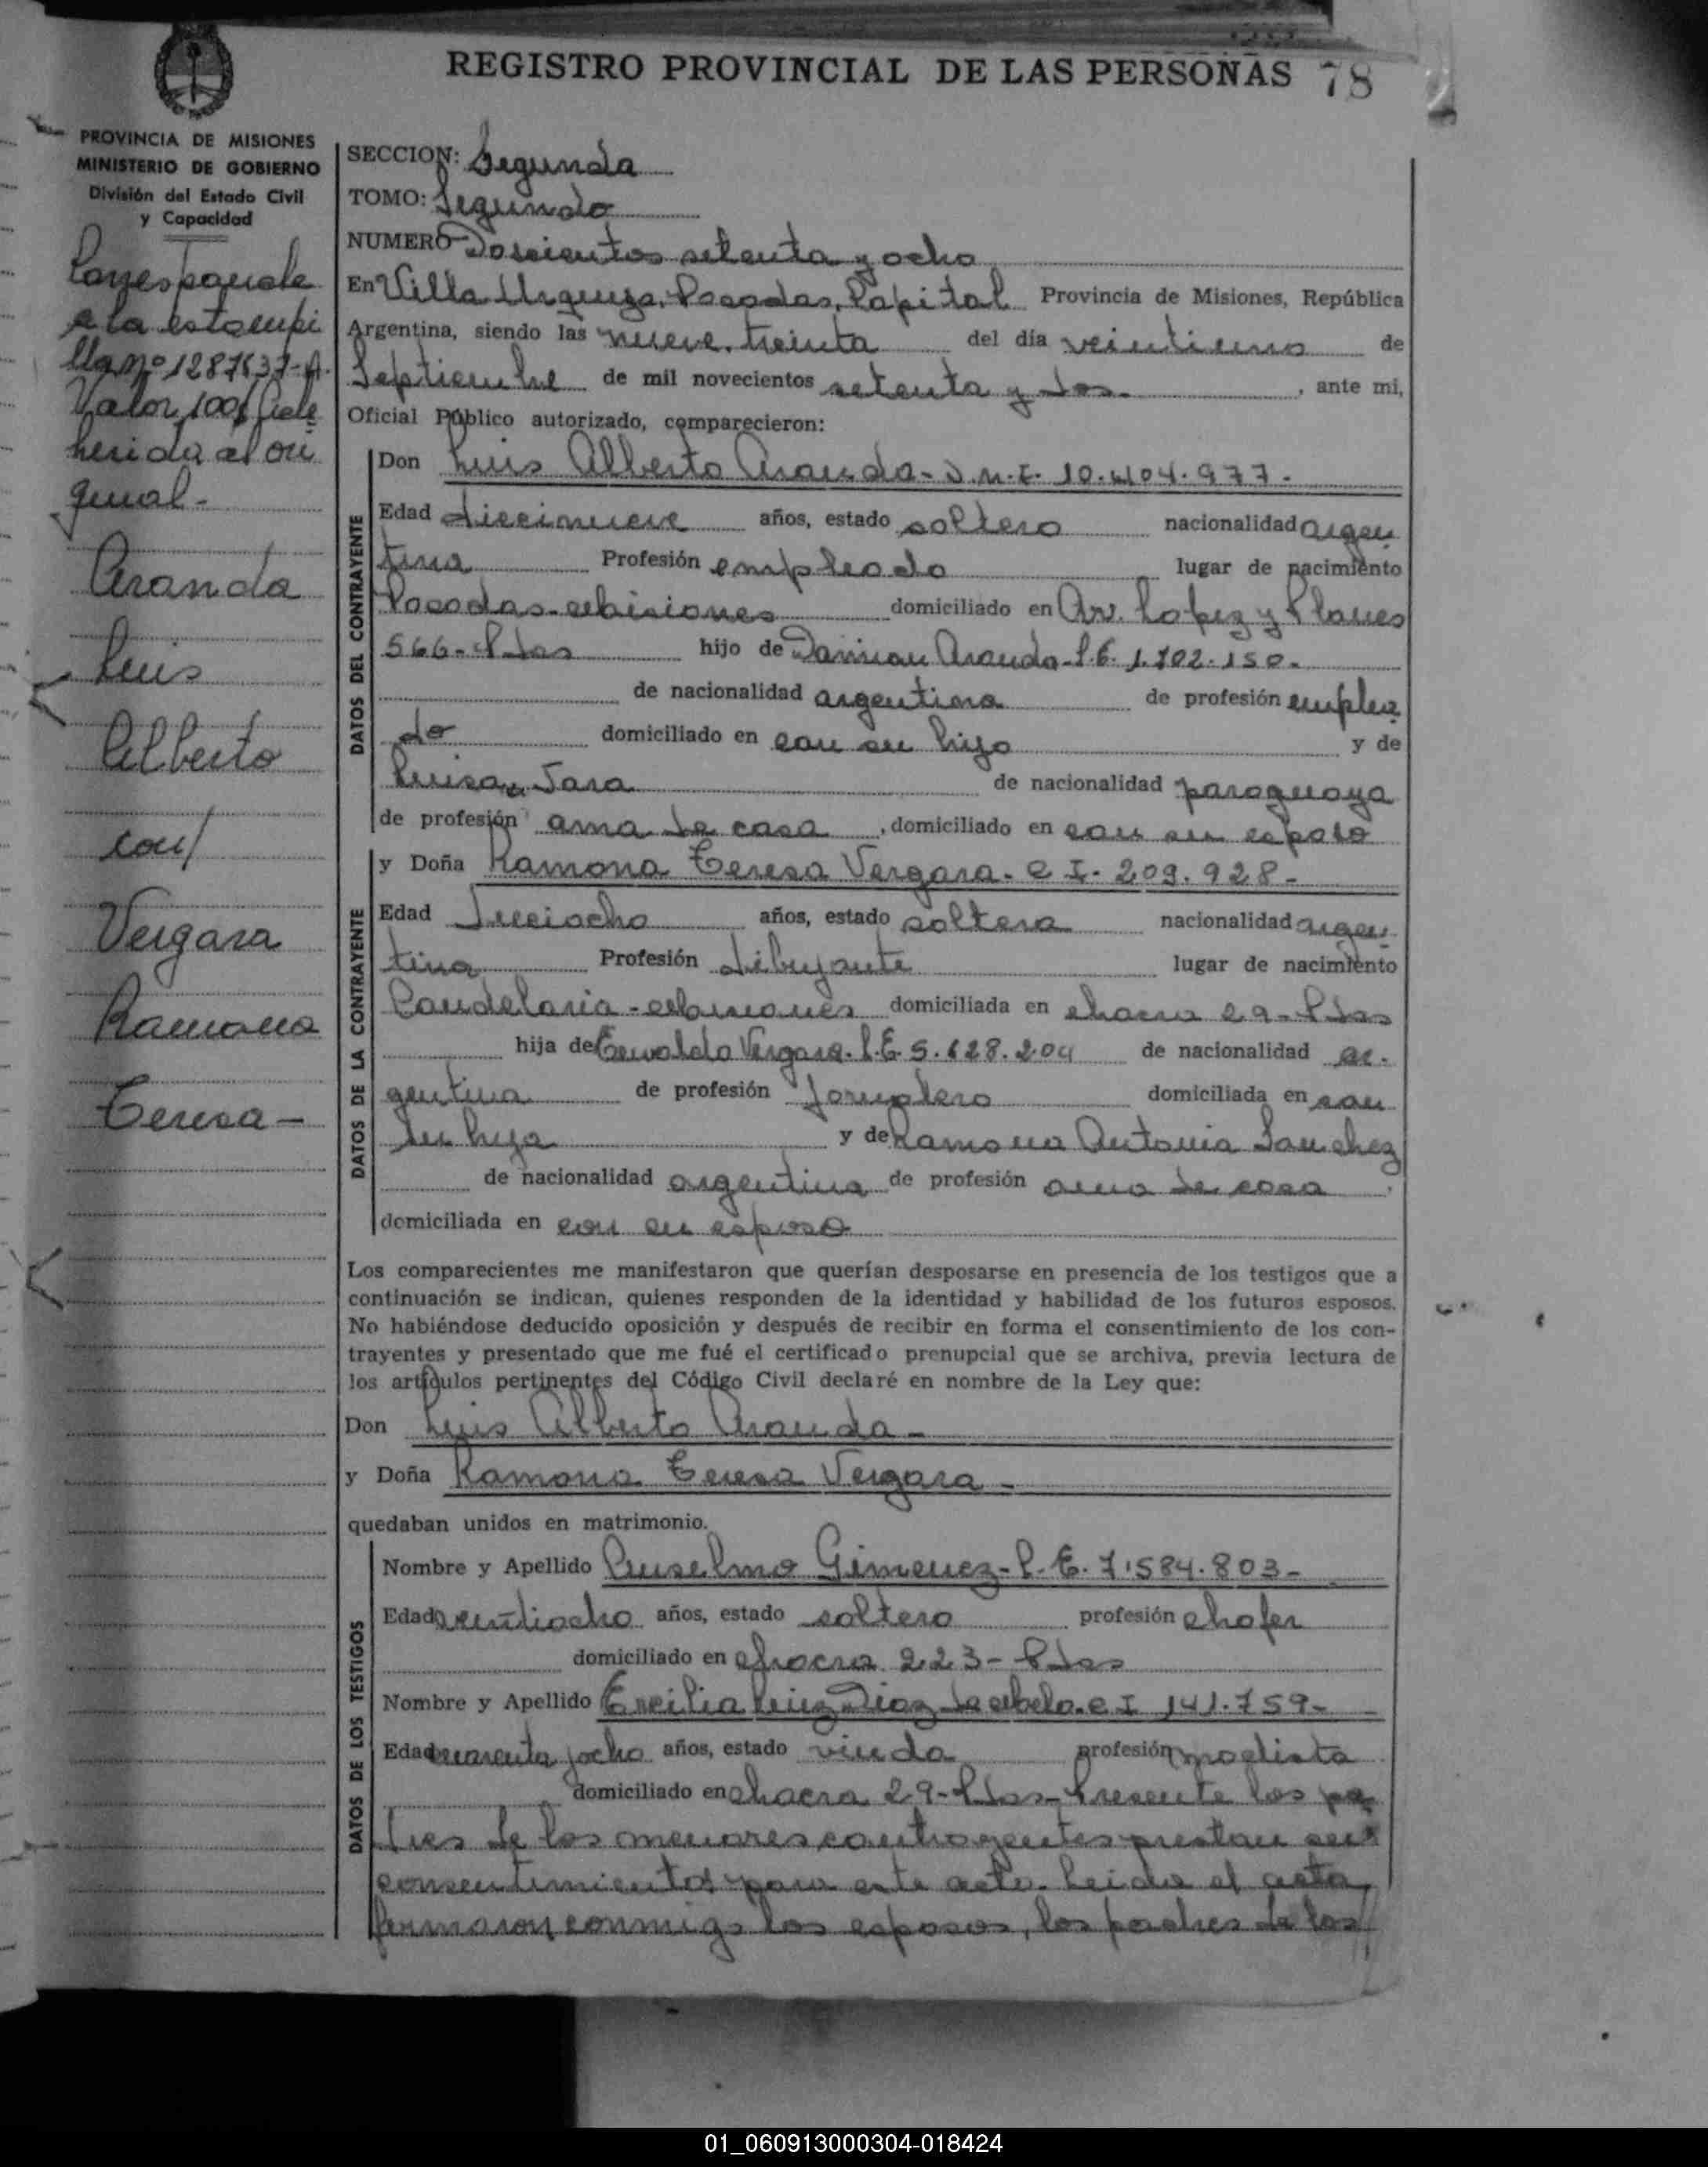 REGISTRO PROVINCIAL DE LAS PERSONAS 78
PROVINCIA DE MISIONES
MINISTERIO DE GOBIERNO
División del Estado Civil
y Capacidad
Corresponde
a la estampi
lla nº 1287637-A.
Valor 100$
herida al ori
ginal-
Aranda
Luis
Alberto
con/
Vergara
Ramona
Teresa-
SECCION: Segunda
TOMO: Segundo
NUMERO Doscientos setenta y ocho
En Villa Urquiza, Posadas, Capital Provincia de Misiones, República
Argentina, siendo las nueve, treinta del día veintiuno de
Septiembre de mil novecientos setenta y dos. , ante mi,
Oficial Público autorizado, comparecieron:
DATOS DEL CONTRAYENTE
Don Luis Alberto Aranda- D.N.I. 10.404.977.
Edad diecinueve años, estado soltero nacionalidad argen
tina Profesión empleado lugar de nacimiento
Posadas-Misiones domiciliado en Av. Lopez y Planes
566-Pdas hijo de Damian Aranda-L.E. 1.702.150.
de nacionalidad argentina de profesión emplea
do domiciliado en con su hijo y de
Luisa Jara de nacionalidad paraguaya
de profesión ama de casa , domiciliado en con su esposo
DATOS DE LA CONTRAYENTE
y Doña Ramona Teresa Vergara. C I. 209.928-
Edad dieciocho años, estado soltera nacionalidad argen
tina Profesión dibujante lugar de nacimiento
Candelaria-Misiones domiciliada en chacra 29-Pdas
hija de Vergara. L.E. 5.628.204 de nacionalidad ar.
gentina de profesión Jornalero domiciliada en con
su hija y de Ramona Antonia Sanchez
de nacionalidad argentina de profesión ama de casa
domiciliada en con su esposo
Los comparecientes me manifestaron que querían desposarse en presencia de los testigos que a
continuación se indican, quienes responden de la identidad y habilidad de los futuros esposos.
No habiéndose deducido oposición y después de recibir en forma el consentimiento de los con-
trayentes y presentado que me fué el certificado prenupcial que se archiva, previa lectura de
los artículos pertinentes del Código Civil declaré en nombre de la Ley que:
Don Luis Alberto Aranda-
y Doña Ramona Teresa Vergara-
quedaban unidos en matrimonio.
DATOS DE LOS TESTIGOS
Nombre y Apellido Anselmo Gimenez-L.E. 7.584.803-
Edad veintiocho años, estado soltero profesión chofer
domiciliado en chacra 223-Pdas
Nombre y Apellido Ercilia Ruiz Diaz de Melo. C I 141.759-
Edad cuarenta y ocho años, estado viuda profesión modista
domiciliado en chacra 29-Pdas-Presente los pa
dres de los menores contrayentes prestan sus
consentimientos para este acto. Leida el acta,
firmaron conmigo los esposos, los padres de los
01_060913000304-018424